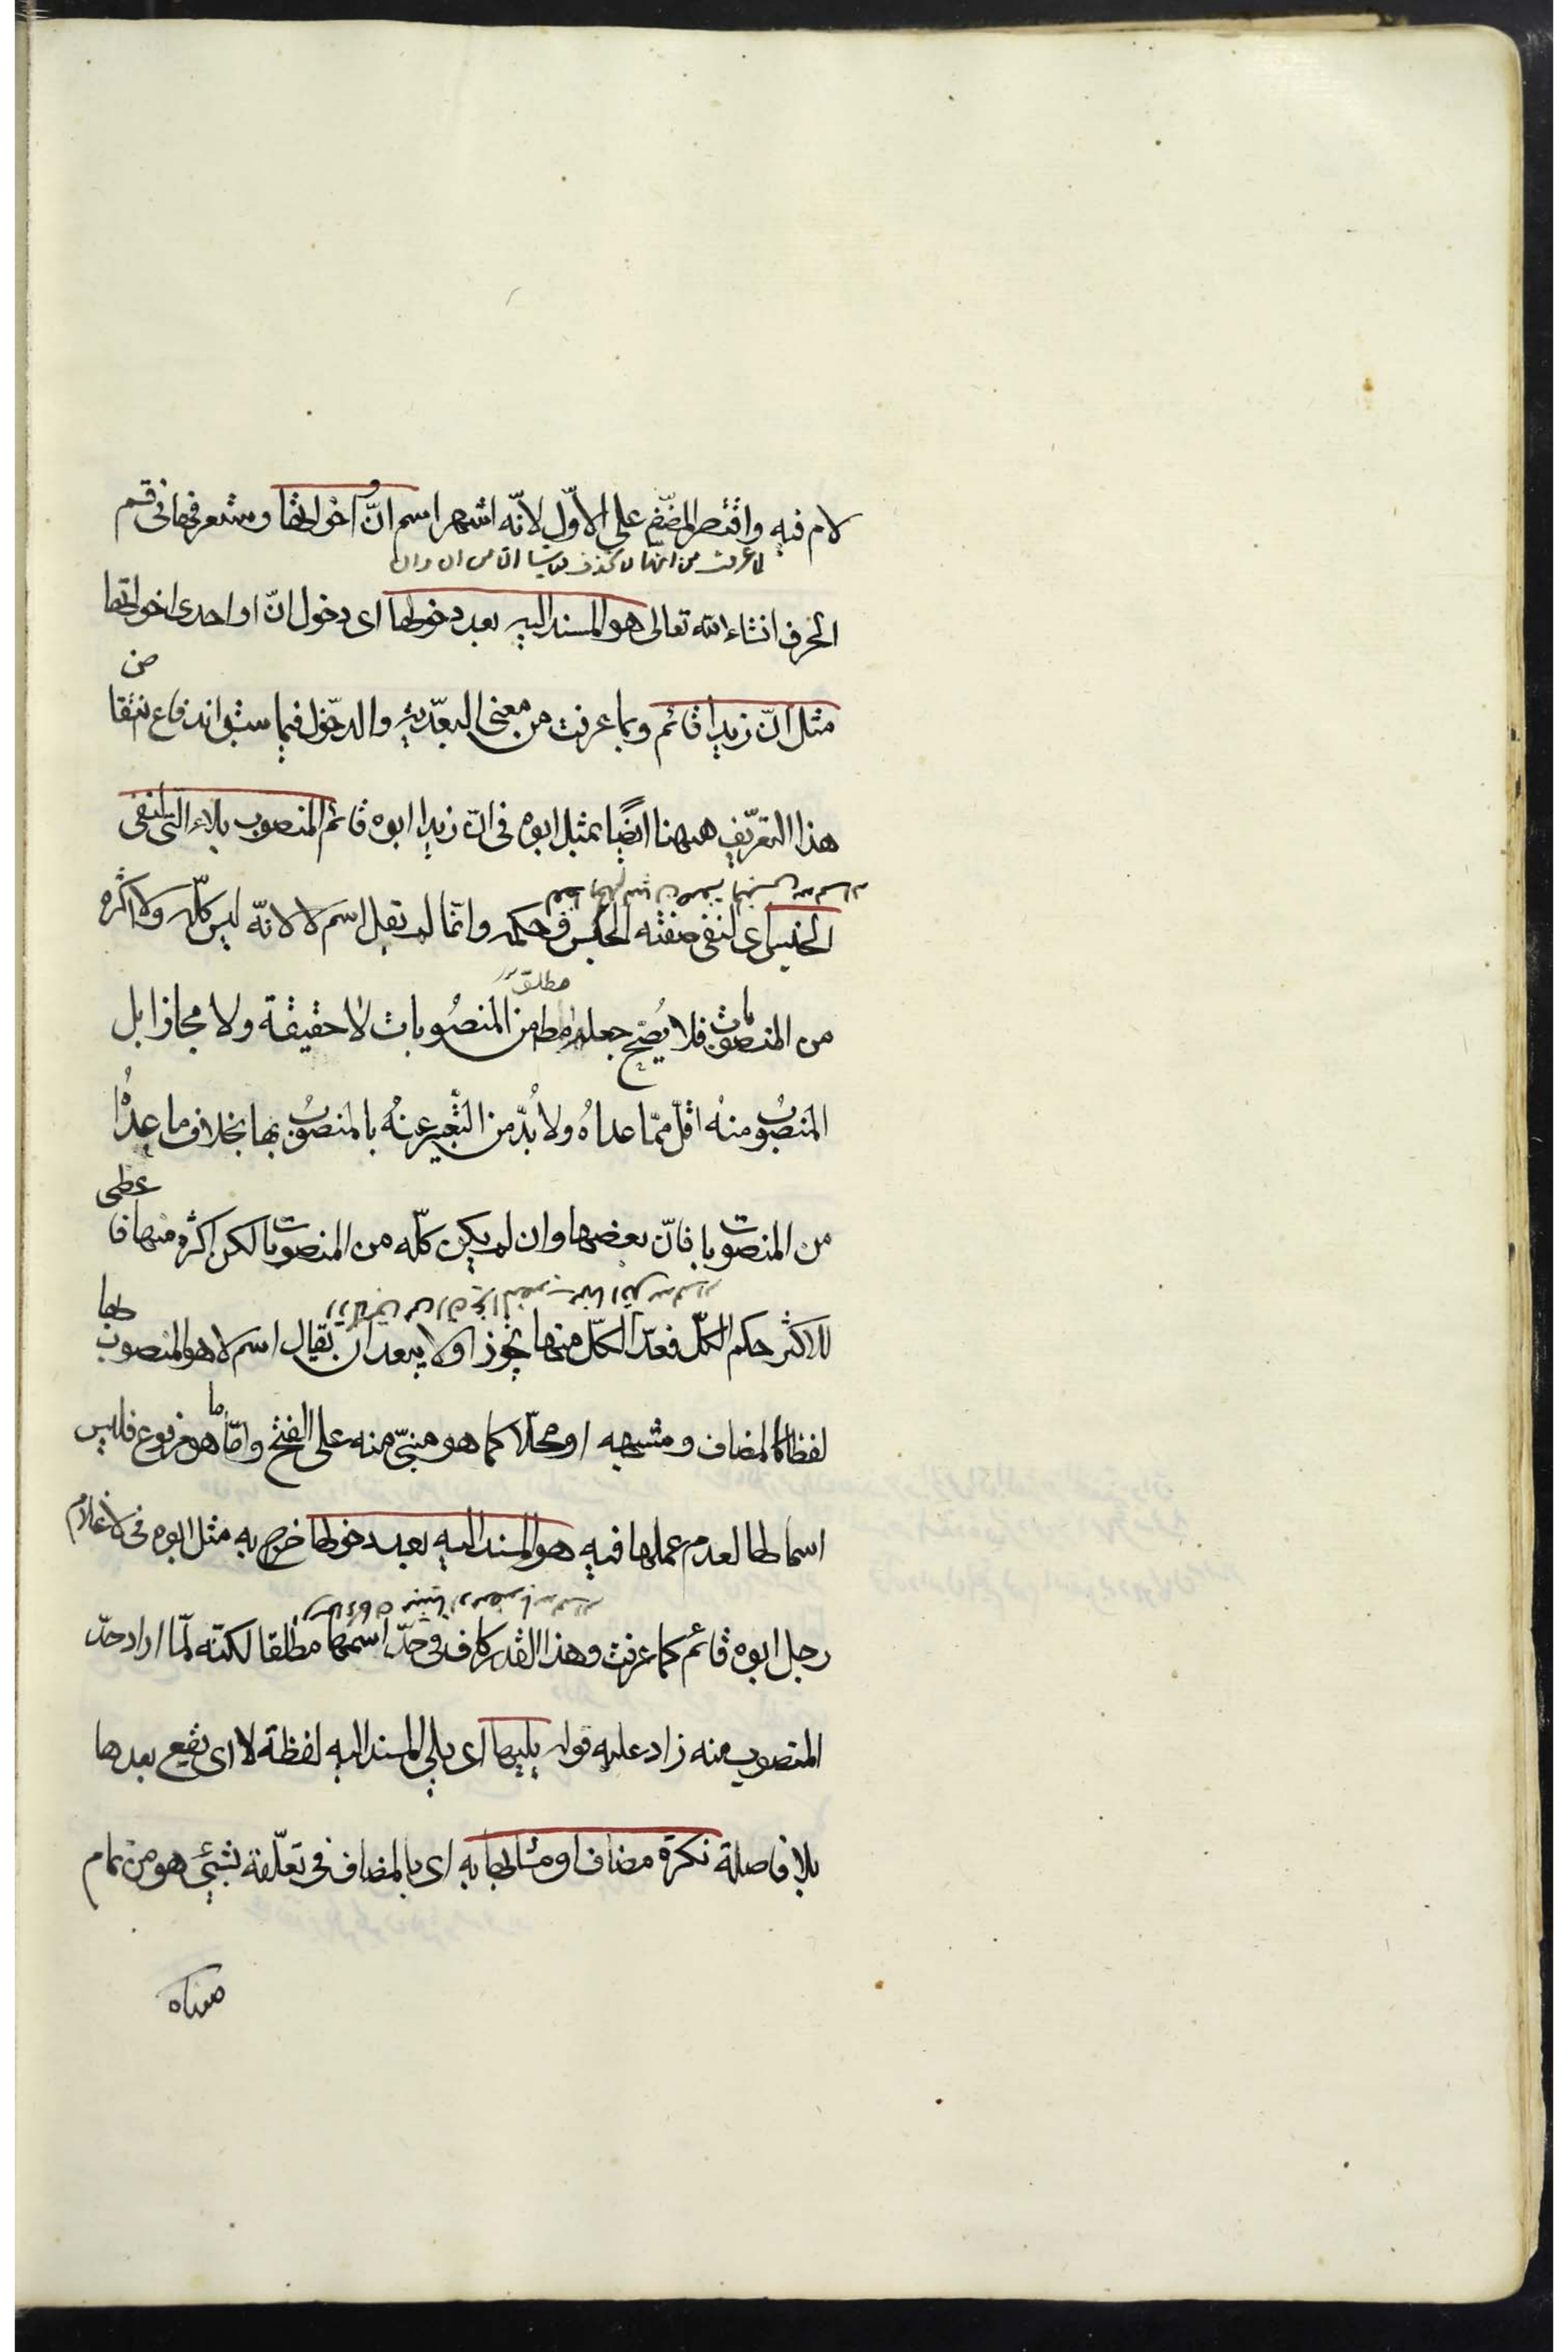 لام فيه واقتصر المصنّف على الاوّل لانّه اشهر اسم انّ واخواتها وستعرفها فى قسم
الحرف انشاء الله تعالى هو المسند اليه بعد دخولها اى دخول انّ او احدى اخواتها
مثل انّ زيدا قائم وبما عرفت من معنى البعديّة والدخول فيما سبق اندفاع انتقاض
هذا التعريف ههنا ايضًا بمثل ابوه فى انّ زيدا ابوه قائم المنصوب بلاء التى لنفى
الجنس اى لنفى صفته الجنس وحكمه وانّما لم يقل اسم لا لانّه ليس كلّه ولا اكثره
من المنصوبات فلا يصُحّ جعله مطلقا من المنصُوبات لا حقيقة ولا مجازا بل
المنصُوب منه اقلّ ممّا عداهُ ولا بُدّ من التّعبير عنهُ بالمنصُوب بها بخلاف ما عداهُ
من المنصوبات فانّ بعضها وان لم يكن كلّه من المنصوبات لكن اكثره منها فاعطى
للاكثر حكم الكلّ فعدّ الكلّ منها تجوّزا ولا يبعد ان يقال اسم لا هو المنصوب بها
لفظا كالمضاف ومشبهه او محلّا كما هو مبنىّ منه على الفتح وامّا ما هو مرفوع فليس
اسما لها لعدم عملها فيه هو المسند اليه بعد دخولها خرج به مثل ابوه فى لا غلام
رجل ابوه قائم كما عرفت وهذا القدر كاف فى حدّ اسمها مطلقا لكنّه لمّا اراد حدّ
المنصوب منه زاد عليه قوله يليها اى يلى المسند اليه لفظة لا اى يقع بعدها
بلا فاصلة نكرة مضافا او مشابها به اى بالمضاف فى تعلّقه بشيئ هو من تمام
معناه